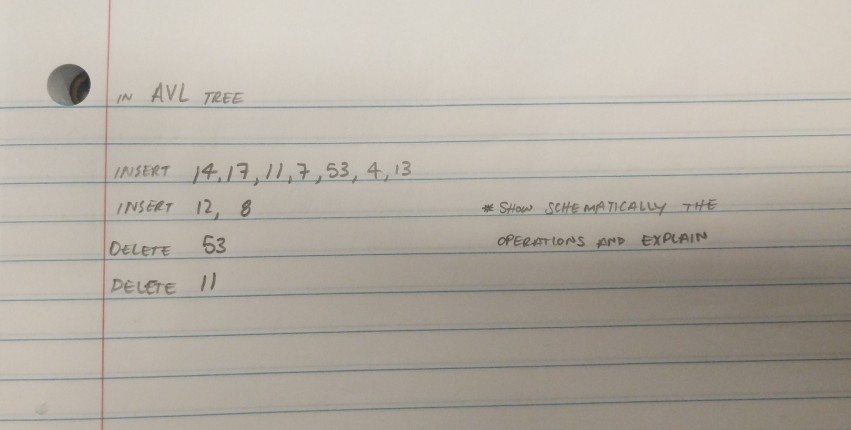 IN AVL TREE
INSERT 14,17,11,7,53,4,13
INSERT 12, 8
* SHOW SCHEMATICALLY THE
OPERATIONS AND EXPLAIN
DELETE 53
DELETE 11